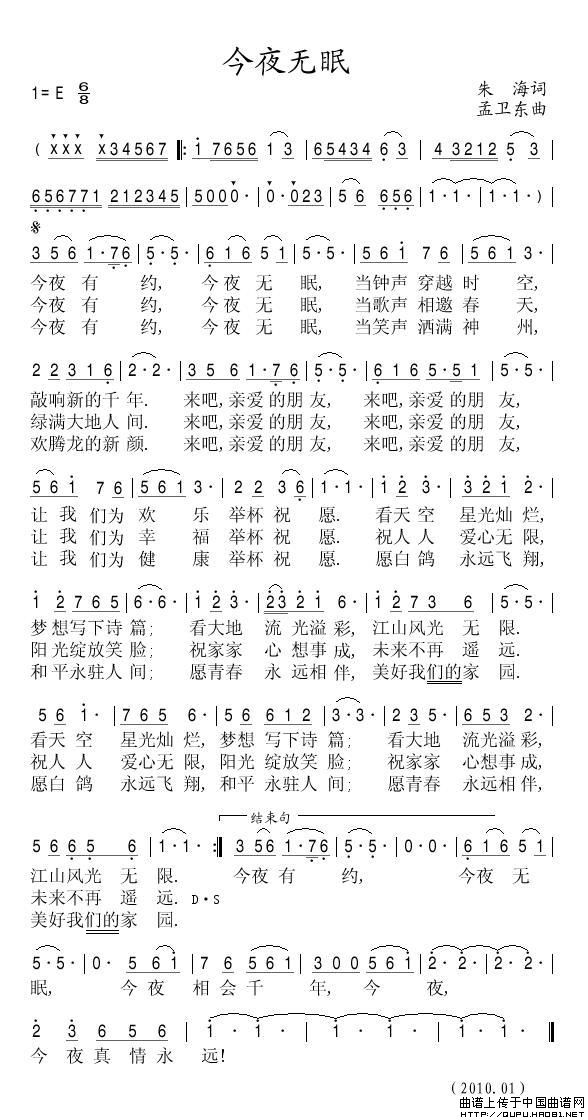 今夜无眠
1=E 6/8
朱 海词
孟卫东曲
( X X X X34567 ‖: 1 7656 1 3 | 65434 6 3 | 4 3212 5 3 |
656771 212345 | 5000· | 0·023 | 5 6 656 | 1·1· | 1·1· )
3 5 6 1·76 | 5·5· | 6 1 6 5 1 | 5·5· | 5 6 1 7 6 | 5 6 1 3· |
今夜 有 约, 今夜 无 眠, 当钟声 穿越 时 空,
今夜 有 约, 今夜 无 眠, 当歌声 相邀 春 天,
今夜 有 约, 今夜 无 眠, 当笑声 洒满 神 州,
2 2 3 1 6 | 2·2· | 3 5 6 1·7 6 | 5·5· | 6 1 6 5·5 1 | 5·5· |
敲响新的千 年. 来吧,亲爱 的朋 友, 来吧,亲爱 的朋 友,
绿满大地人 间. 来吧,亲爱 的朋 友, 来吧,亲爱 的朋 友,
欢腾龙的新 颜. 来吧,亲爱 的朋 友, 来吧,亲爱 的朋 友,
5 6 1 7 6 | 5 6 1 3· | 2 2 3 6 | 1·1· | 1 2 3· | 3 2 1 2· |
让 我 们为 欢 乐 举杯 祝 愿. 看天 空 星光灿 烂,
让 我 们为 幸 福 举杯 祝 愿. 祝人 人 爱心无 限,
让 我 们为 健 康 举杯 祝 愿. 愿白 鸽 永远飞 翔,
1 2 7 6 5 | 6·6· | 1 2 3· | 23 2 1 6· | 1·2 7 3 6 |
梦想写下诗 篇; 看大地 流 光溢 彩, 江山风光 无 限.
阳光绽放笑 脸; 祝家家 心 想事 成, 未来不再 遥 远.
和平永驻人 间; 愿青春 永 远相 伴, 美好我们的家 园.
5 6 1· | 7 6 5 6· | 5 6 6 1 2 | 3·3· | 2 1 2· | 6 5 3 2 |
看天 空 星光灿 烂, 梦想 写下诗 篇; 看大地 流光溢彩,
祝人 人 爱心无 限, 阳光 绽放笑 脸; 祝家家 心想事成,
愿白 鸽 永远飞 翔, 和平 永驻人 间; 愿青春 永远相伴,
结束句
5 6 6 5 6 | 1·1· :‖ 3 56 1·76 | 5·5· | 0·0· | 6 1 6 5 1 |
江山风光 无 限. 今夜 有 约, 今夜 无
未来不再 遥 远. D·S
美好我们的家 园.
5·5· | 0· 5 6 1 | 7 6 5 6 1 | 3 0 0 5 6 1 | 2·2· | 2·2· |
眠, 今 夜 相 会 千 年, 今 夜,
2 3 6 5 6 | 1·1· | 1·1· | 1·1· ‖
今 夜 真 情 永 远!
(2010.01)
曲谱上传于中国曲谱网
HTTP://QUPU.HAO81.NET